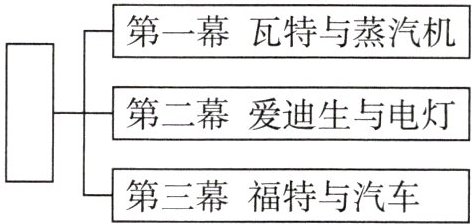 第一幕 瓦特与蒸汽机
第二幕 爱迪生与电灯
第三幕 福特与汽车